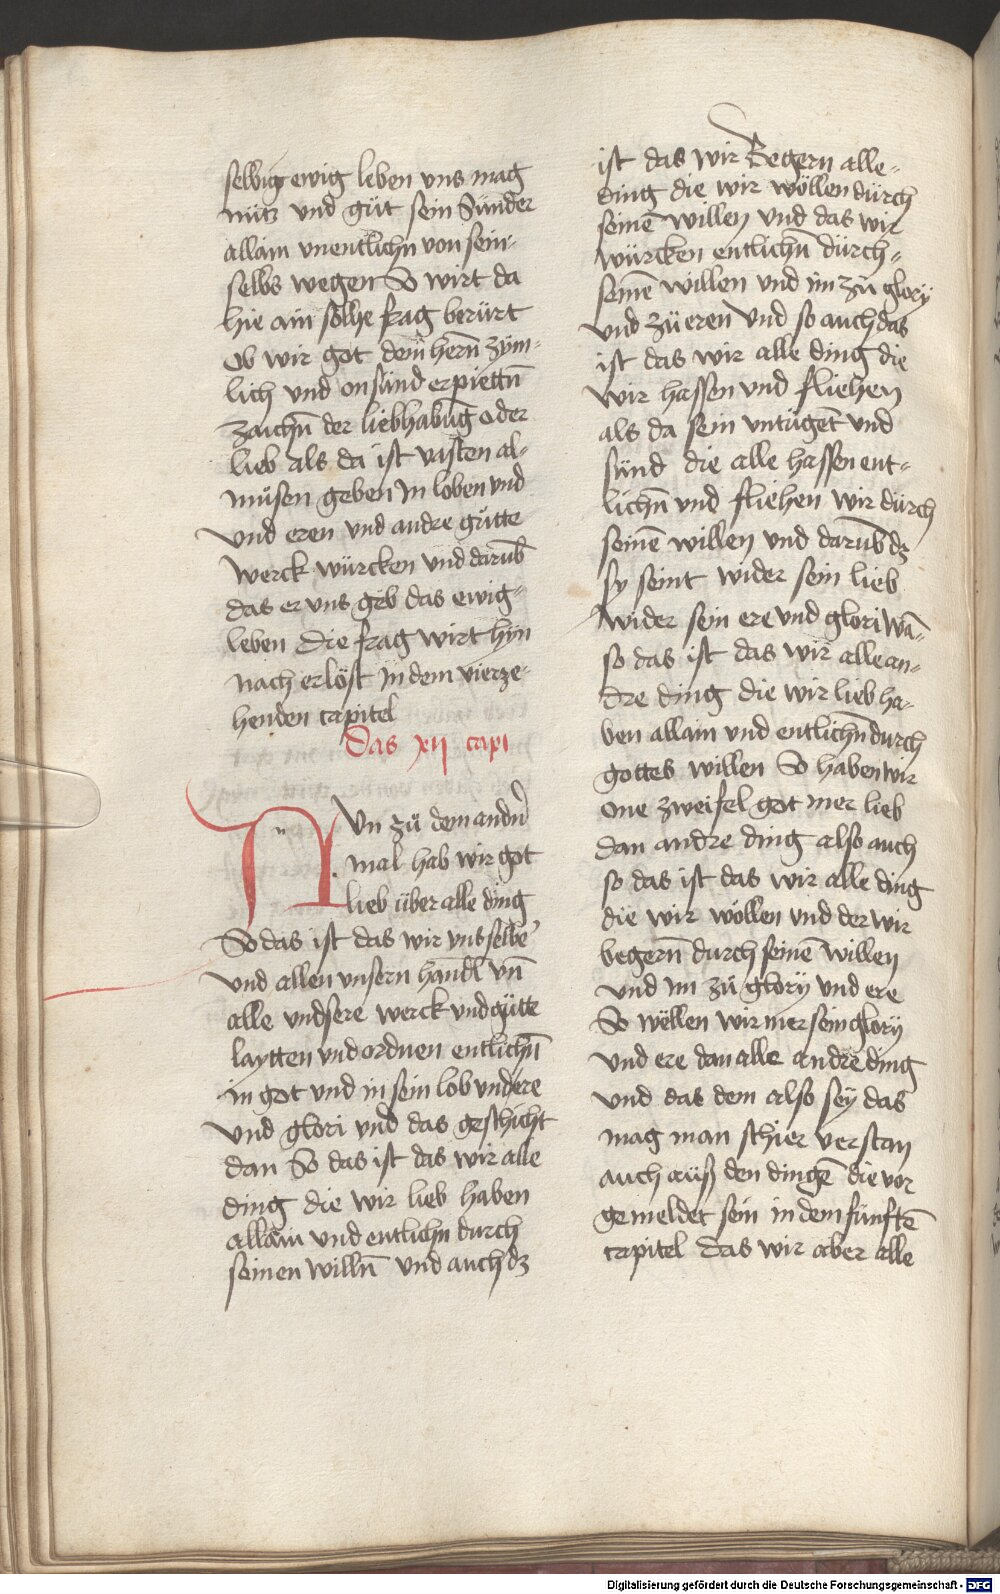 selbig ewig leben vns mag
nütz vnd güt sein Sünder
allain vnentlichn von sein-
selbs wegen So wirt da
hie ain solhe frag berürt
Ob wir got dem hern̄ zÿm-
lich vnd on sünd erpiettn̄
zaichn̄ der liebhabūg oder
lieb als da ist vasten al-
müsen geben In loben vnd
vnd eren vnd andre gütte
werck würcken vnd darūb
das er vns geb das ewig-
leben Die frag wirt hÿn
nach erlöst in dem vierze-
henden capitel
Das xij capi
NVn zü dem andn̄
mal hab wir got
lieb über alle ding
So das ist das wir vns selbē
vnd allen vnsern handl vn̄
alle vndsere werck vnd gütte
laytten vnd ordnen entlichn̄
in got vnd in sein lob vnd ere
vnd glori vnd das geschicht
dan So das ist das wir alle
ding die wir lieb haben
allain vnd entlichn durch
seinen willn̄ vnd auch dz
ist das wir Begern alle-
ding die wir wöllen dürch
seinē willen vnd das wir
würcken entlichn̄ dürch-
seinē willen vnd im zü glory
vnd zü eren Vnd so auch das
ist das wir alle ding die
wir hassen vnd fliehen
als da sein vntügēt vnd
sünd die alle hassen ent-
lichn̄ vnd fliehen wir dürch
seinē willen vnd darūb dz
sy seint wider sein lieb
wider sein ere vnd glori wā-
so das ist das wir alle an-
dre ding die wir lieb ha-
ben allain vnd entlichn̄ durch
gottes willen So haben wir
one zweifel got mer lieb
dan andre ding also auch
so das ist das wir alle ding
die wir wöllen vnd der wir
begern̄ durch seinē willen
vnd im zü glory vnd ere
So wëllen wir mer sein glory
vnd ere dan alle andre ding
vnd das dem also sey das
mag man schier verstan
auch aüß den dingē die vor
gemeldet sein in dem fünftē
capitel das wir aber alle
Digitalisierung gefördert durch die Deutsche Forschungsgemeinschaft - DFG